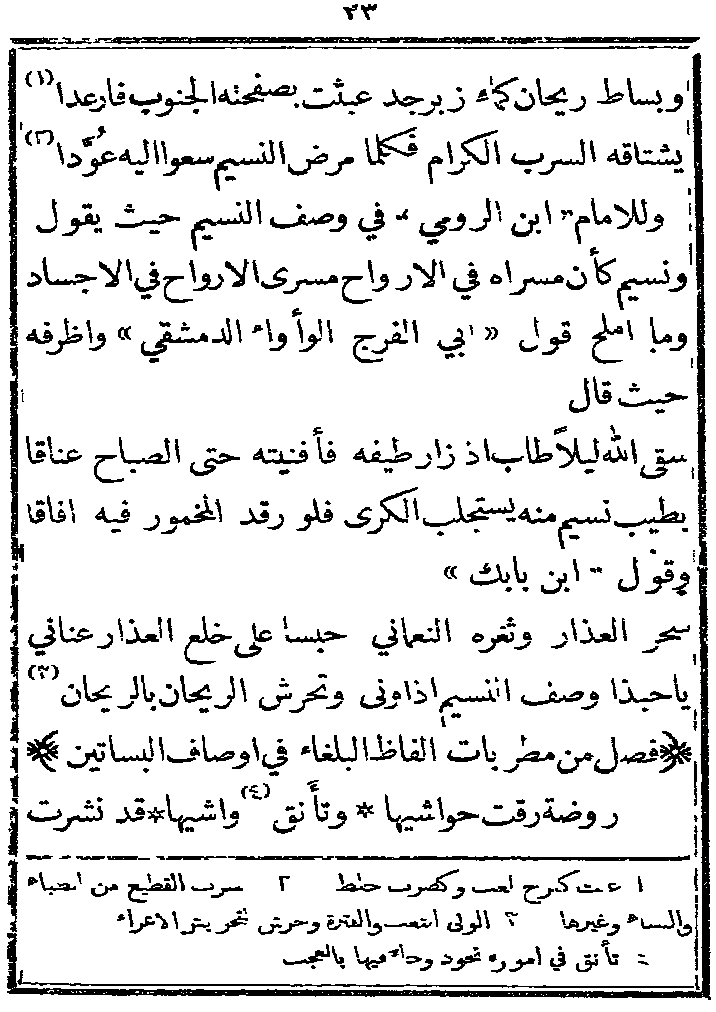 ٤٣
وبساط ريحان كماء زبرجد عبثت بصفحته الجنوب فارعدا (١)
يشتاقه السرب الكرام فكلما مرض النسيم سعوا اليه عوَّدا (٢)
وللامام « ابن الرومي » في وصف النسيم حيث يقول
ونسيم كأن مسراه في الارواح مسرى الارواح في الاجساد
وما املح قول « ابي الفرج الوأواء الدمشقي » واظرفه
حيث قال
سقى الله ليلاً طاب اذ زار طيفه فأفنيته حتى الصباح عناقا
بطيب نسيم منه يستجلب الكرى فلو رقد المخمور فيه افاقا
وقول « ابن بابك »
سحر العذار وثغره النعماني حبسا على خلع العذار عناني
ياحبذا وصف النسيم اذاونى وتحرش الريحان بالريحان (٣)
﴿ فصل من مطربات الفاظ البلغاء في اوصاف البساتين ﴾
روضة رقت حواشيها * وتأنق (٤) واشيها * قد نشرت
١ عبث كفرح لعب وكضرب خلط ٢ سرب القطيع من الضباء
والنساء وغيرها ٣ الونى التعب والفترة وحرش تحريش الاغراء
٤ تأنق في اموره تجود وجاء فيها بالعجب